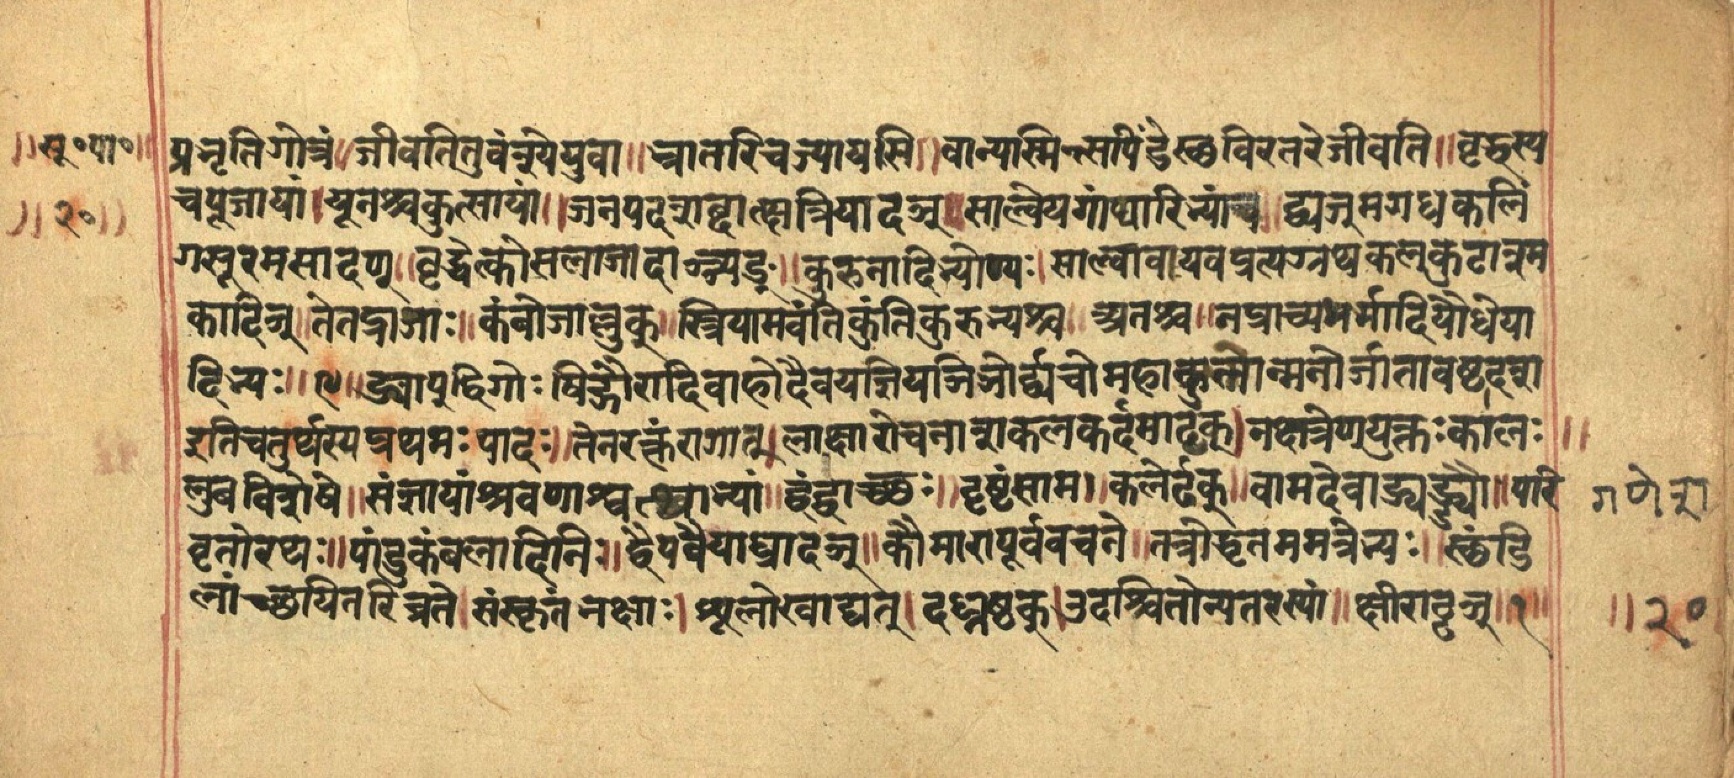 ॥सू॰पा॰॥ प्रभृतिगोत्रं॥जीवतितुवंश्येयुवा॥भ्रातरिचज्यायसि॥वान्यस्मिन्सपिंडेस्थविरतरेजीवति॥वृद्धस्य
॥२०॥ चपूजायां॥यूनश्चकुत्सायां॥जनपदशब्दात्क्षत्रियादञ्॥साल्वेयगांधारिभ्यांच॥द्व्यञ्मगधकलिं
गसूरमसादण्॥वृद्धेत्कोसलाजादाञ्ञ्यङ्॥कुरुनादिभ्योण्यः॥साल्वावयवप्रत्यग्रथकलकूटाश्म
कादिञ्॥तेतद्राजाः॥कंबोजाल्लुक्॥स्त्रियामवंतिकुंतिकुरुभ्यश्च॥अतश्च॥नप्राच्यभर्गादियौधेया
दिभ्यः॥९॥ङ्यापुद्विगोः षिद्गौरादिवाहोदैवयज्ञियजिञोर्द्व्यचोमहाकुलान्मनोर्जातावष्टदशा
इतिचतुर्थस्यप्रथमः पादः॥तेनरक्तंरागात्॥लाक्षारोचनाशकलकर्दमाट्ठक्॥नक्षत्रेणयुक्तःकालः॥
लुबविशेषे॥संज्ञायांश्रवणाश्वत्थाभ्यां॥द्वंद्वाच्छः॥दृष्टंसाम॥कलेर्ढक्॥वामदेवाड्ड्यड्ड्यौ॥परि गणेशा
वृतोरथः॥पांडुकंबलादिनिः॥द्वैपवैयाघ्रादञ्॥कौमारापूर्ववचने॥तत्रोद्धृतममत्रेभ्यः॥स्थंडि
लाच्छयितरिव्रते॥संस्कृतंभक्षाः॥शूलोखाद्यत्॥दध्नष्ठक्॥उदश्वितोन्यतरस्यां॥क्षीराड्ढञ्॥१॥ ॥२०